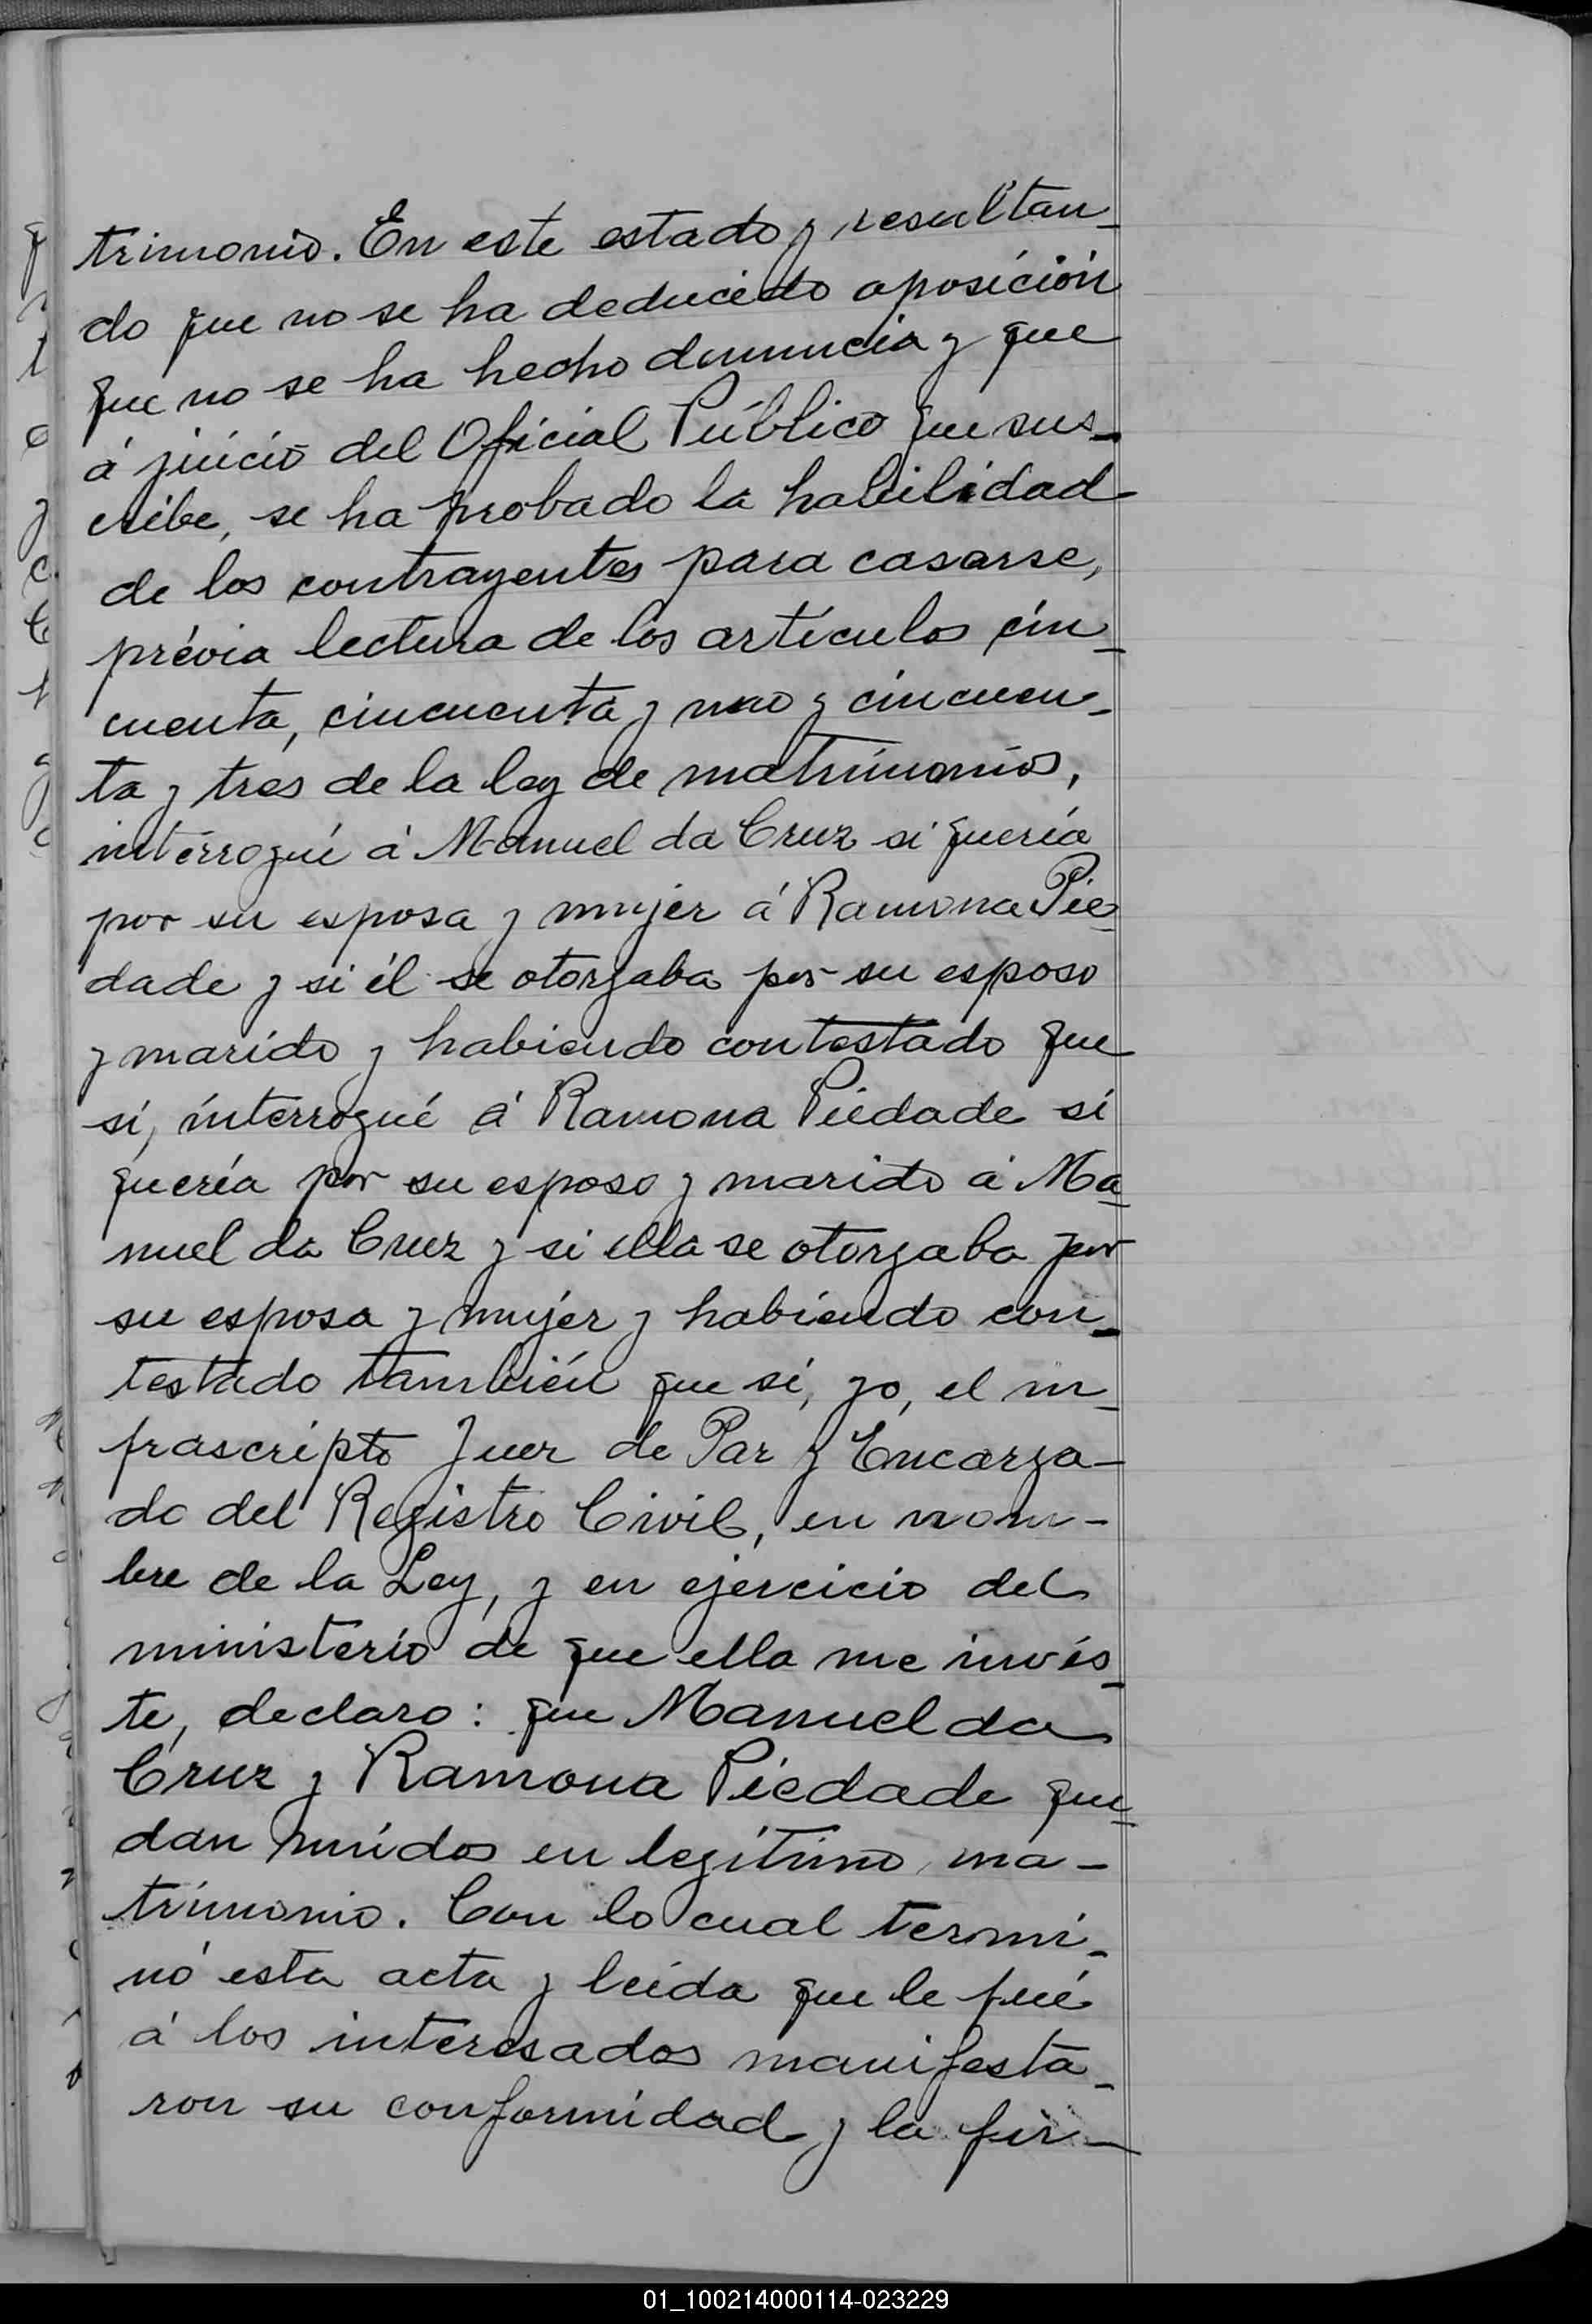 trimonio. En este estado y resultan-
do que no se ha deducido oposición
que no se ha hecho denuncia y que
á juicio del Oficial Público que sus-
cribe, se ha probado la habilidad
de los contrayentes para casarse,
prévia lectura de los artículos cin-
cuenta, cincuenta y uno y cincuen-
ta y tres de la ley de matrimonios,
interrogué á Manuel da Cruz si quería
por su esposa y mujer á Ramona Pie-
dade y si él se otorgaba por su esposo
y marido y habiendo contestado que
si, interrogué á Ramona Piedade si
quería por su esposo y marido á Ma-
nuel da Cruz y si ella se otorgaba por
su esposa y mujer y habiendo con-
testado también que si, yo, el in-
frascripto Juez de Paz y Encarga-
do del Registro Civil, en nom-
bre de la Ley, y en ejercicio del
ministerio de que ella me invis-
te, declaro: que Manuel da
Cruz y Ramona Piedade que-
dan unidos en legítimo ma-
trimonio. Con lo cual termi-
nó esta acta y leida que le fué
á los interesados manifesta-
ron su conformidad y la fir-
01_100214000114-023229